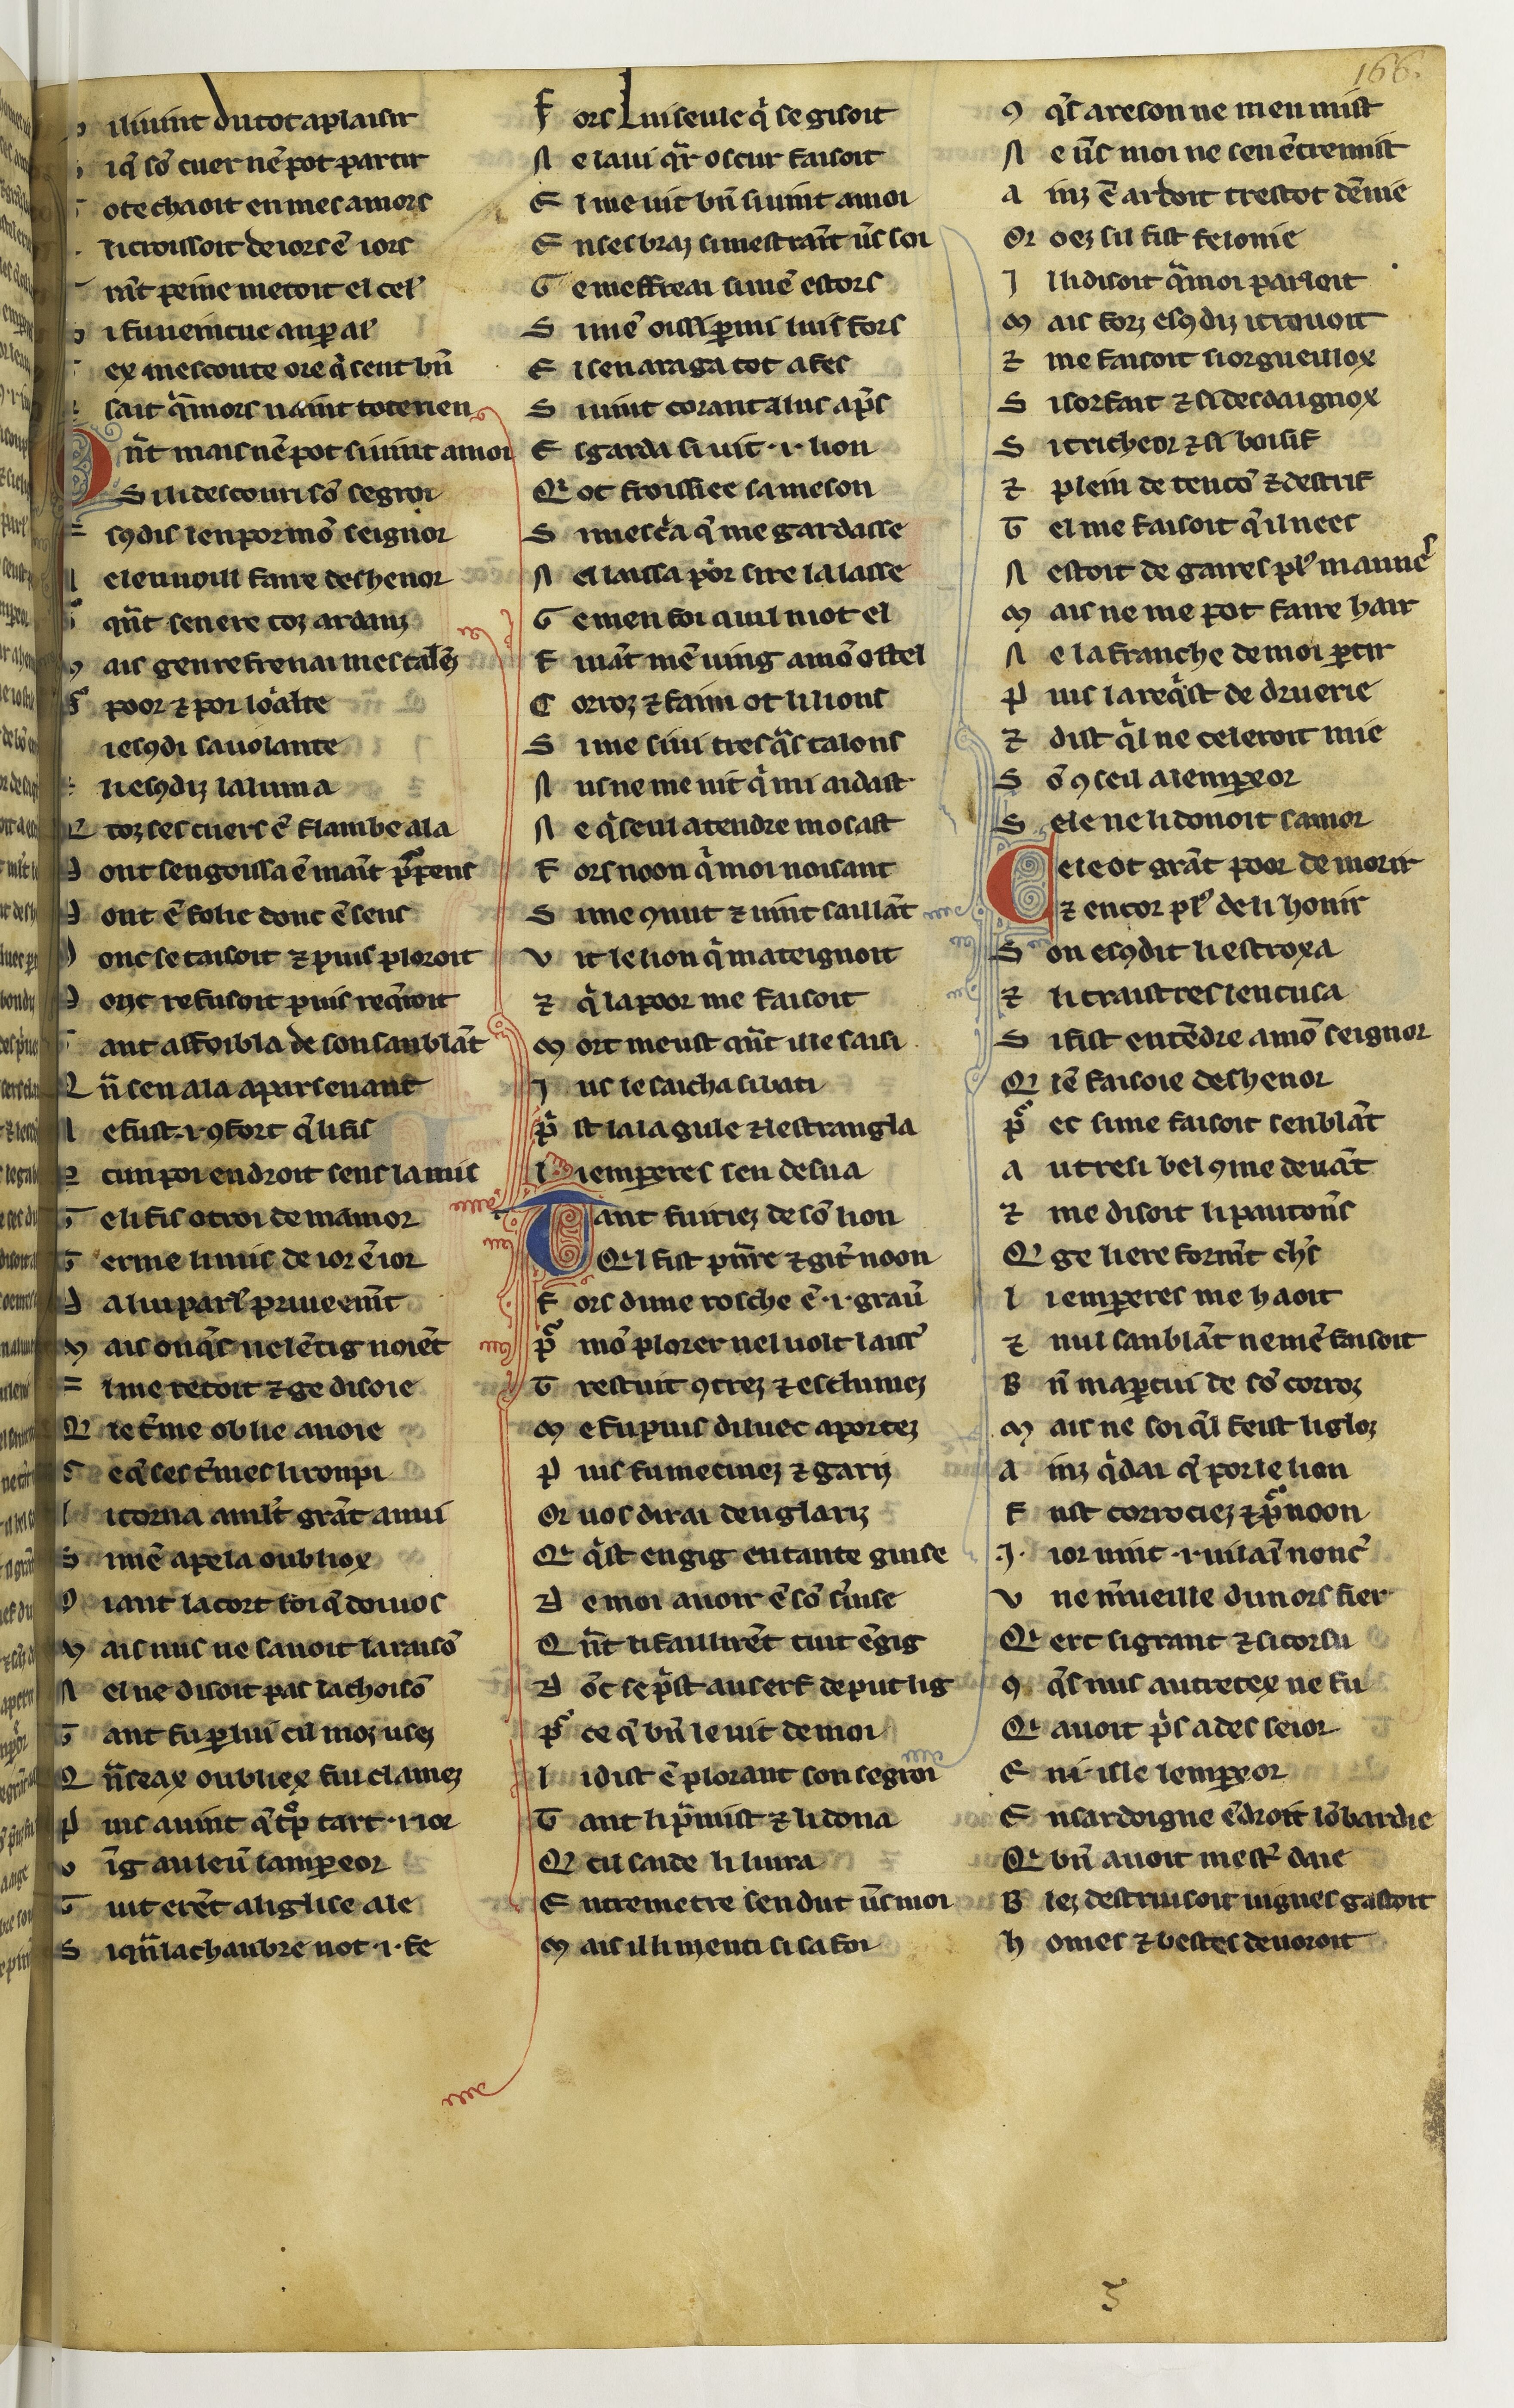 166.
iliuint du tot a plaisir
iq̃ sõ cuer nẽ pot partir
ote chaoit en mes amors
li croissoit de iors ẽ iors
mc̃t peine metoit el cel'
i fu ueincuz au ꝑ al'
ex mescoute ore q̃ sent bñ
sait q̃ mors uaint tote rien
Qñt mais nẽ pot si uint a moi
Si li descouri sõ segroi
E sꝯdis len por mõ seignor
N ele uuoill faire deshenor
G quñt sen ere toz ardanz
M ais gen refrenai mes talẽz
P poor ⁊ por loialte
iescꝯdi sa uolante
il escꝯdiz laluma
Q toz ses cuers ẽ flambe ala
D ont sengoissa ẽ mañt p̃pens
D ont ẽ folie donc ẽ sens
D onc se taisoit ⁊ puis ploroit
D onc refusoit puis req̃roit
T ant affoibla de son sanblãt
Q ñ sen ala aparseuant
N e fust .i. ꝯfort q̃ li fis
E cun poi en droit sens la mis
G e li fis otroi de mamor
T erme li mis de ior ẽ ior
D a lui parl' priueemt̃
M ais onq̃s ne lẽtig noiẽt
E l me tetoit ⁊ ge disoie
Q le t̃me oblie auoie
S eq̃ ses t̃mes li ronpi
L i torna a ml̃t grãt anui
S i mẽ apela oubliox
D iant la cort foi q̃ doi uos
M ais nus ne sauoit la raisõ
N el ne disoit pas lachoisõ
T ant fu ꝑ lui cil moz usez
Q ñ teax oubliex fui clamez
P uis auint q̃ t̃p tart .i. ior
V ĩg au leu̾ lamꝑeor
T uit erẽt aliglise ale
S i qñ la chanbre not .i. fe
F ors Lui seule q̃ se gisoit
N e laui q̃r oscur faisoit
E l me uit bñ si uint a moi
E n ses braz si mestraĩt u̾s soi
G e meffreai si mẽ estors
S i mẽ oissi ꝑmi luis fors
E l sen araga tot a fes
S i uint corant aluis ap̃s
E sgarda si uit .i. lion
Q ot froissiee sa meson
S i mescria q̃ me gardasse
N el laissa por sire la lasse
G e men foi auil not el
F uiãt mẽ uing a mõ ostel
C orroz ⁊ faim ot li lions
S i me siui tresq̃s talons
N us ne me uit q̃ mi aidast
N e q̃ seul atendre mosast
F ors noon q̃ moi noisant
S i me ꝯnut ⁊ uint saillãt
V it le lion q̃ mateignoit
⁊ q̃ la poor me faisoit
M ort meust qñt il le saisi
J us le saicha si bati
P̃ st la la gule ⁊ lestrangla
L iemꝑeres sen desua
Tant fu iriez de sõ lion
Ql fist pñre ⁊ git̾ noon
F ors dune rosche ẽ .i. grau̾
P̃ mõ plorer nel uolt laiss'
T restuit ꝯtrez ⁊ eschinez
M e fu puis diluec aportez
P uis fu mecinez ⁊ gariz
Or uos dirai denglariz
Q q̃st engig en tante guise
D e moi auoir ẽ sõ s̾uise
Q ñt li faillirẽt tuit ẽgig
D õc se p̃st au serf de put lig
P̃ ce q̃ bñ le uit de moi
L i dist ẽ plorant son segroi
T ant li p̃mist ⁊ li dona
Q cil saide li liura
E ntremetre sen dut u̾s moi
M ais il li menti si sa foi
ꝯ q̃s areson ne men mist
N e u̾s moi ne sen ẽtremist
A inz ẽ ardoit trestot dẽuie
Or oez sil fist felonie
J l li disoit q̃ moi parloit
M ais forz escꝯdiz i trouoit
⁊ me faisoit si orgueillox
S i sorfait ⁊ si desdaignox
S i tricheor ⁊ si boisif
⁊ plein de tencõ ⁊ destrif
T el me faisoit q̃ il nees
N estoit de gaires pl9 mauues
M ais ne me pot faire hair
N e la franche de moi ꝑtir
P uis la req̃st de druerie
⁊ dist q̃l ne celeroit mie
S õ ꝯseil alemꝑeor
S ele ne li donoit samor
Cele ot grãt poor de morir
⁊ encor pl9 de li honir
S on escꝯdit li estroxa
⁊ li traistres lencusa
S i fist entẽdre a mõ seignor
Q lẽ faisoie deshenor
P̃ ec si me faisoit senblãt
A utresi bel ꝯme deuãt
⁊ me disoit li pautoñs
Q ge li ere formt̃ ch̾s
L iemꝑeres me haoit
⁊ nul sanblãt ne mẽ faisoit
B ñ maꝑcui de sõ corroz
M ais ne soi q̃l feist li gloz
A inz q̃dai q̃ por le lion
F ust corrociez ⁊ p̃ noon
.J. ior uint .i. uilaĩ nonc'
V ne m̾ueille dun ors fier
Q ert si grant ⁊ si corsu
ꝯ q̃s nus autretex ne fu
Q auoit p̃s ades seior
E n i. isle lemꝑeor
E n sardoigne ẽdroit lõbardie
Q bñ auoit mest̾ daie
B lez destruisoit uignes gastoit
H omes ⁊ bestes deuoroit